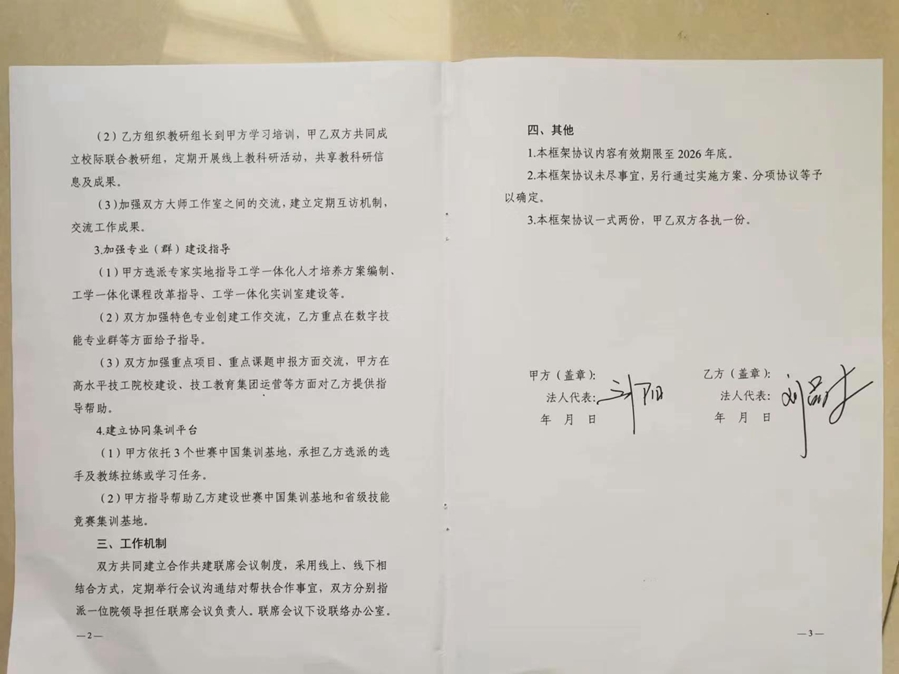 （2）乙方组织教研组长到甲方学习培训，甲乙双方共同成
立校际联合教研组，定期开展线上教科研活动，共享教科研信
息及成果。
（3）加强双方大师工作室之间的交流，建立定期互访机制，
交流工作成果。
3.加强专业（群）建设指导
（1）甲方选派专家实地指导工学一体化人才培养方案编制、
工学一体化课程改革指导、工学一体化实训室建设等。
（2）双方加强特色专业创建工作交流，乙方重点在数字技
能专业群等方面给予指导。
（3）双方加强重点项目、重点课题申报方面交流，甲方在
高水平技工院校建设、技工教育集团运营等方面对乙方提供指
导帮助。
4.建立协同集训平台
（1）甲方依托 3 个世赛中国集训基地，承担乙方选派的选
手及教练拉练或学习任务。
（2）甲方指导帮助乙方建设世赛中国集训基地和省级技能
竞赛集训基地。
三、工作机制
双方共同建立合作共建联席会议制度，采用线上、线下相
结合方式，定期举行会议沟通结对帮扶合作事宜，双方分别指
派一位院领导担任联席会议负责人。联席会议下设联络办公室。
—2—
四、其他
1.本框架协议内容有效期限至 2026 年底。
2.本框架协议未尽事宜，另行通过实施方案、分项协议等予
以确定。
3.本框架协议一式两份，甲乙双方各执一份。
甲方（盖章）：
法人代表：
年 月 日
乙方（盖章）：
法人代表：
年 月 日
—3—